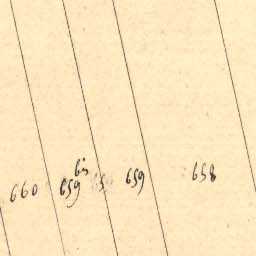 660 659 659 658